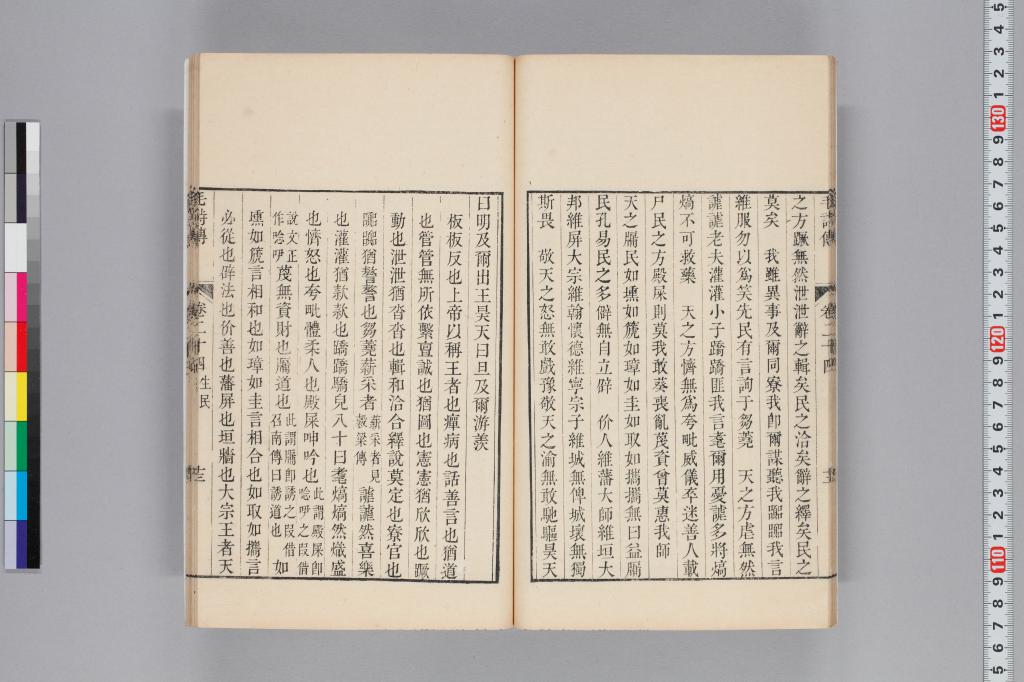 之方蹶無然泄泄辭之輯矣民之洽矣辭之繹矣民之
莫矣　我雖異事及爾同寮我卽爾謀聽我嚻嚻我言
維服勿以爲笑先民有言詢于芻蕘　天之方虐無然
謔謔老夫灌灌小子蹻蹻匪我言耄爾用憂謔多將熇
熇不可救藥　天之方懠無爲夸毗威儀卒迷善人載
尸民之方殿屎則莫我敢葵喪亂蔑資曾莫惠我師
天之牖民如壎如箎如璋如圭如取如攜攜無曰益牖
民孔易民之多僻無自立辟　价人維藩大師維垣大
邦維屏大宗維翰懷德維寧宗子維城無俾城壞無獨
斯畏　敬天之怒無敢戲豫敬天之渝無敢馳驅昊天
毛詩傳　卷二十四
曰明及爾出王昊天曰旦及爾游羨
板板反也上帝以稱王者也癉病也話善言也猶道
也管管無所依繫亶誠也猶圖也憲憲猶欣欣也蹶
動也泄泄猶沓沓也輯和洽合繹說莫定也寮官也
嚻嚻猶謷謷也芻蕘薪采者薪采者見穀梁傳謔謔然喜樂
也灌灌猶款款也蹻蹻驕皃八十曰耄熇熇然熾盛
也懠怒也夸毗體柔人也殿屎呻吟也此謂殿屎卽唸吚之叚借
說文正作唸吚蔑無資財也牖道也此謂牖卽誘之叚借召南傳曰誘道也如
壎如箎言相和也如璋如圭言相合也如取如攜言
必從也辟法也价善也藩屏也垣牆也大宗王者天
毛詩傳　卷二十四　生民